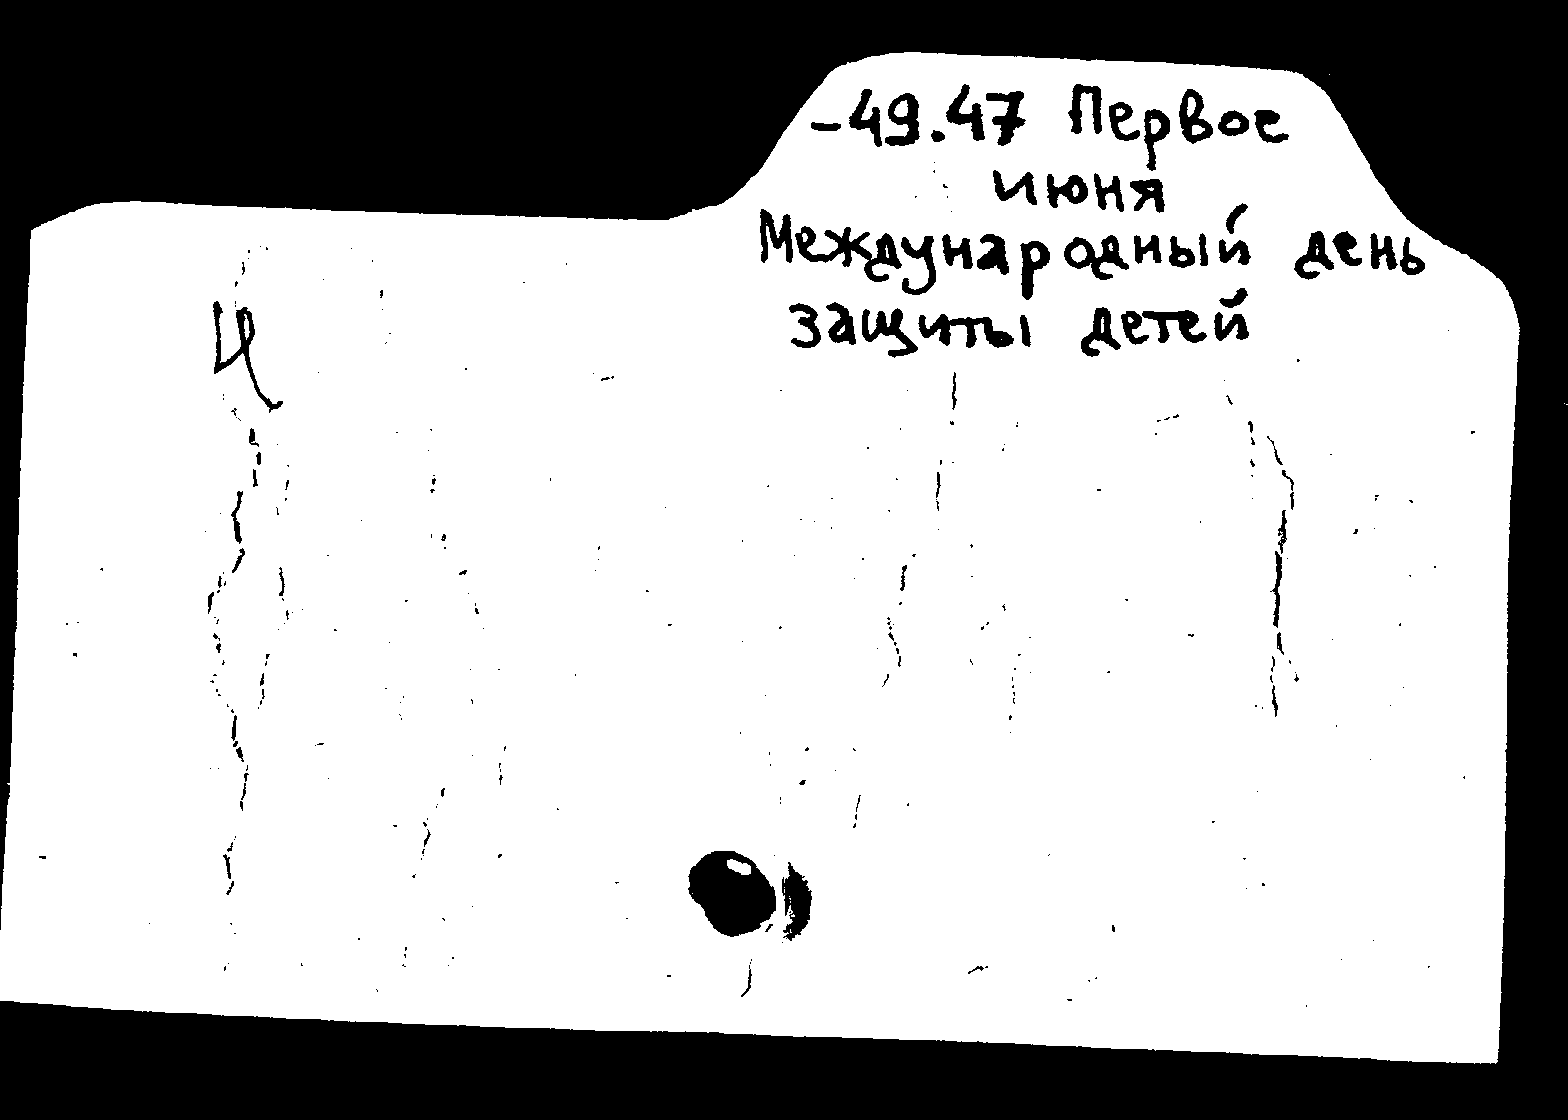 -49.47 Первое
июня
Международный день
защиты детей